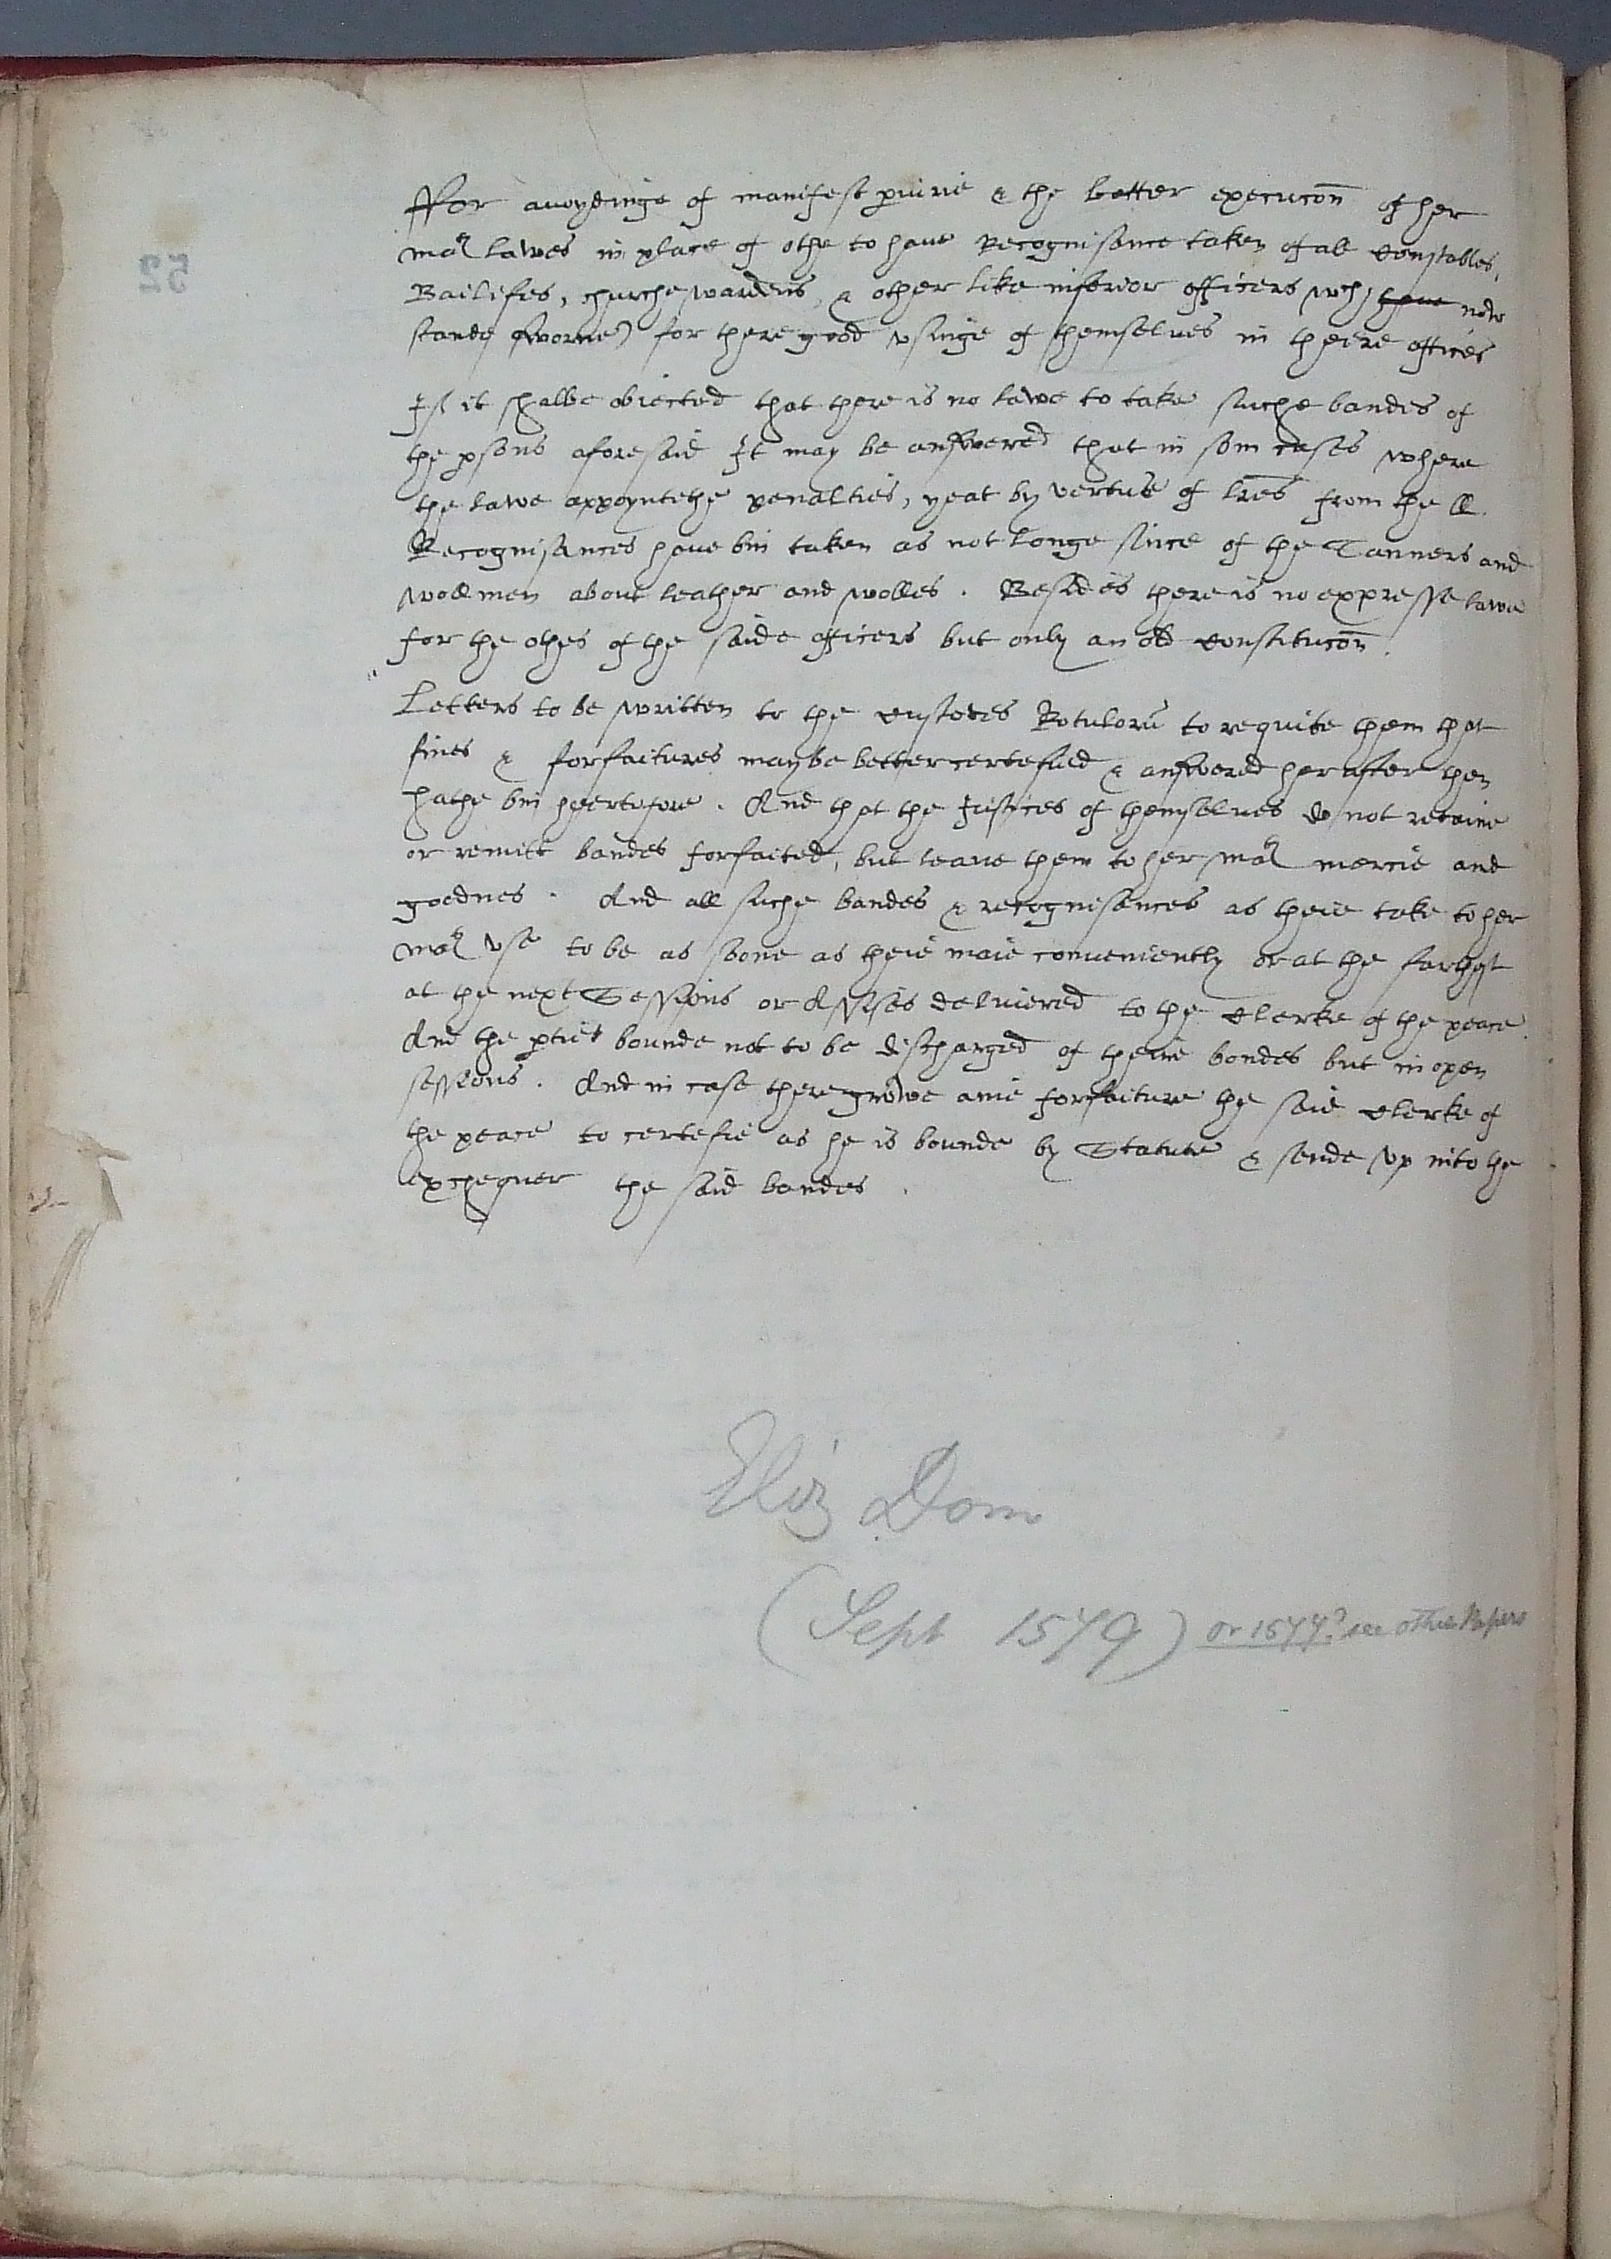 ffor auoydinge of manifest ꝑiurie & the better execucōn of her
maᵗˢ lawes in place of othe to haue Recognisance taken of all Constables,
Bailifes, Churchewardens, & other like inferior officers wch haue now
stande sworne) for there good vsinge of themselues in theire offices
If it shalbe obiected that there is no lawe to take suche bandes of
the ꝑsons aforesaid It may be answered that in som cases where
the lawe appoyntethe penalties, yeat by vertue of lr̄es from the ll.
Recognisances haue bin taken as not longe since of the Tanners and
wollmen about leather and wolles. Besides there is no expresse lawe
for the othes of the saide officers but only an old Constitucōn.
Letters to be written to the Custodes Rotulorū to require them that
fines & forfaitures maybe better certefied & answered herafter then
hathe bin heertofore. And that the Justices of themselues do not retaine
or remitt bandes forfaited, but leaue them to her maᵗˢ mercie and
goodnes. And all suche bandes & recognisances as theie take to her
maᵗˢ vse to be as soone as theie maie conueniently or at the farthest
at the next Sessions or Assises deliuered to the Clerke of the peace.
And the ꝑties bounde not to be discharged of theire bondes but in open
sessions. And in case there growe anie forfaiture the said Clerke of
the peace to certefie as he is bounde by Statute & sende vp into the
exchequer the said bandes.
Eliz Dom
(Sept 1579) or 1577? see other Papers
52